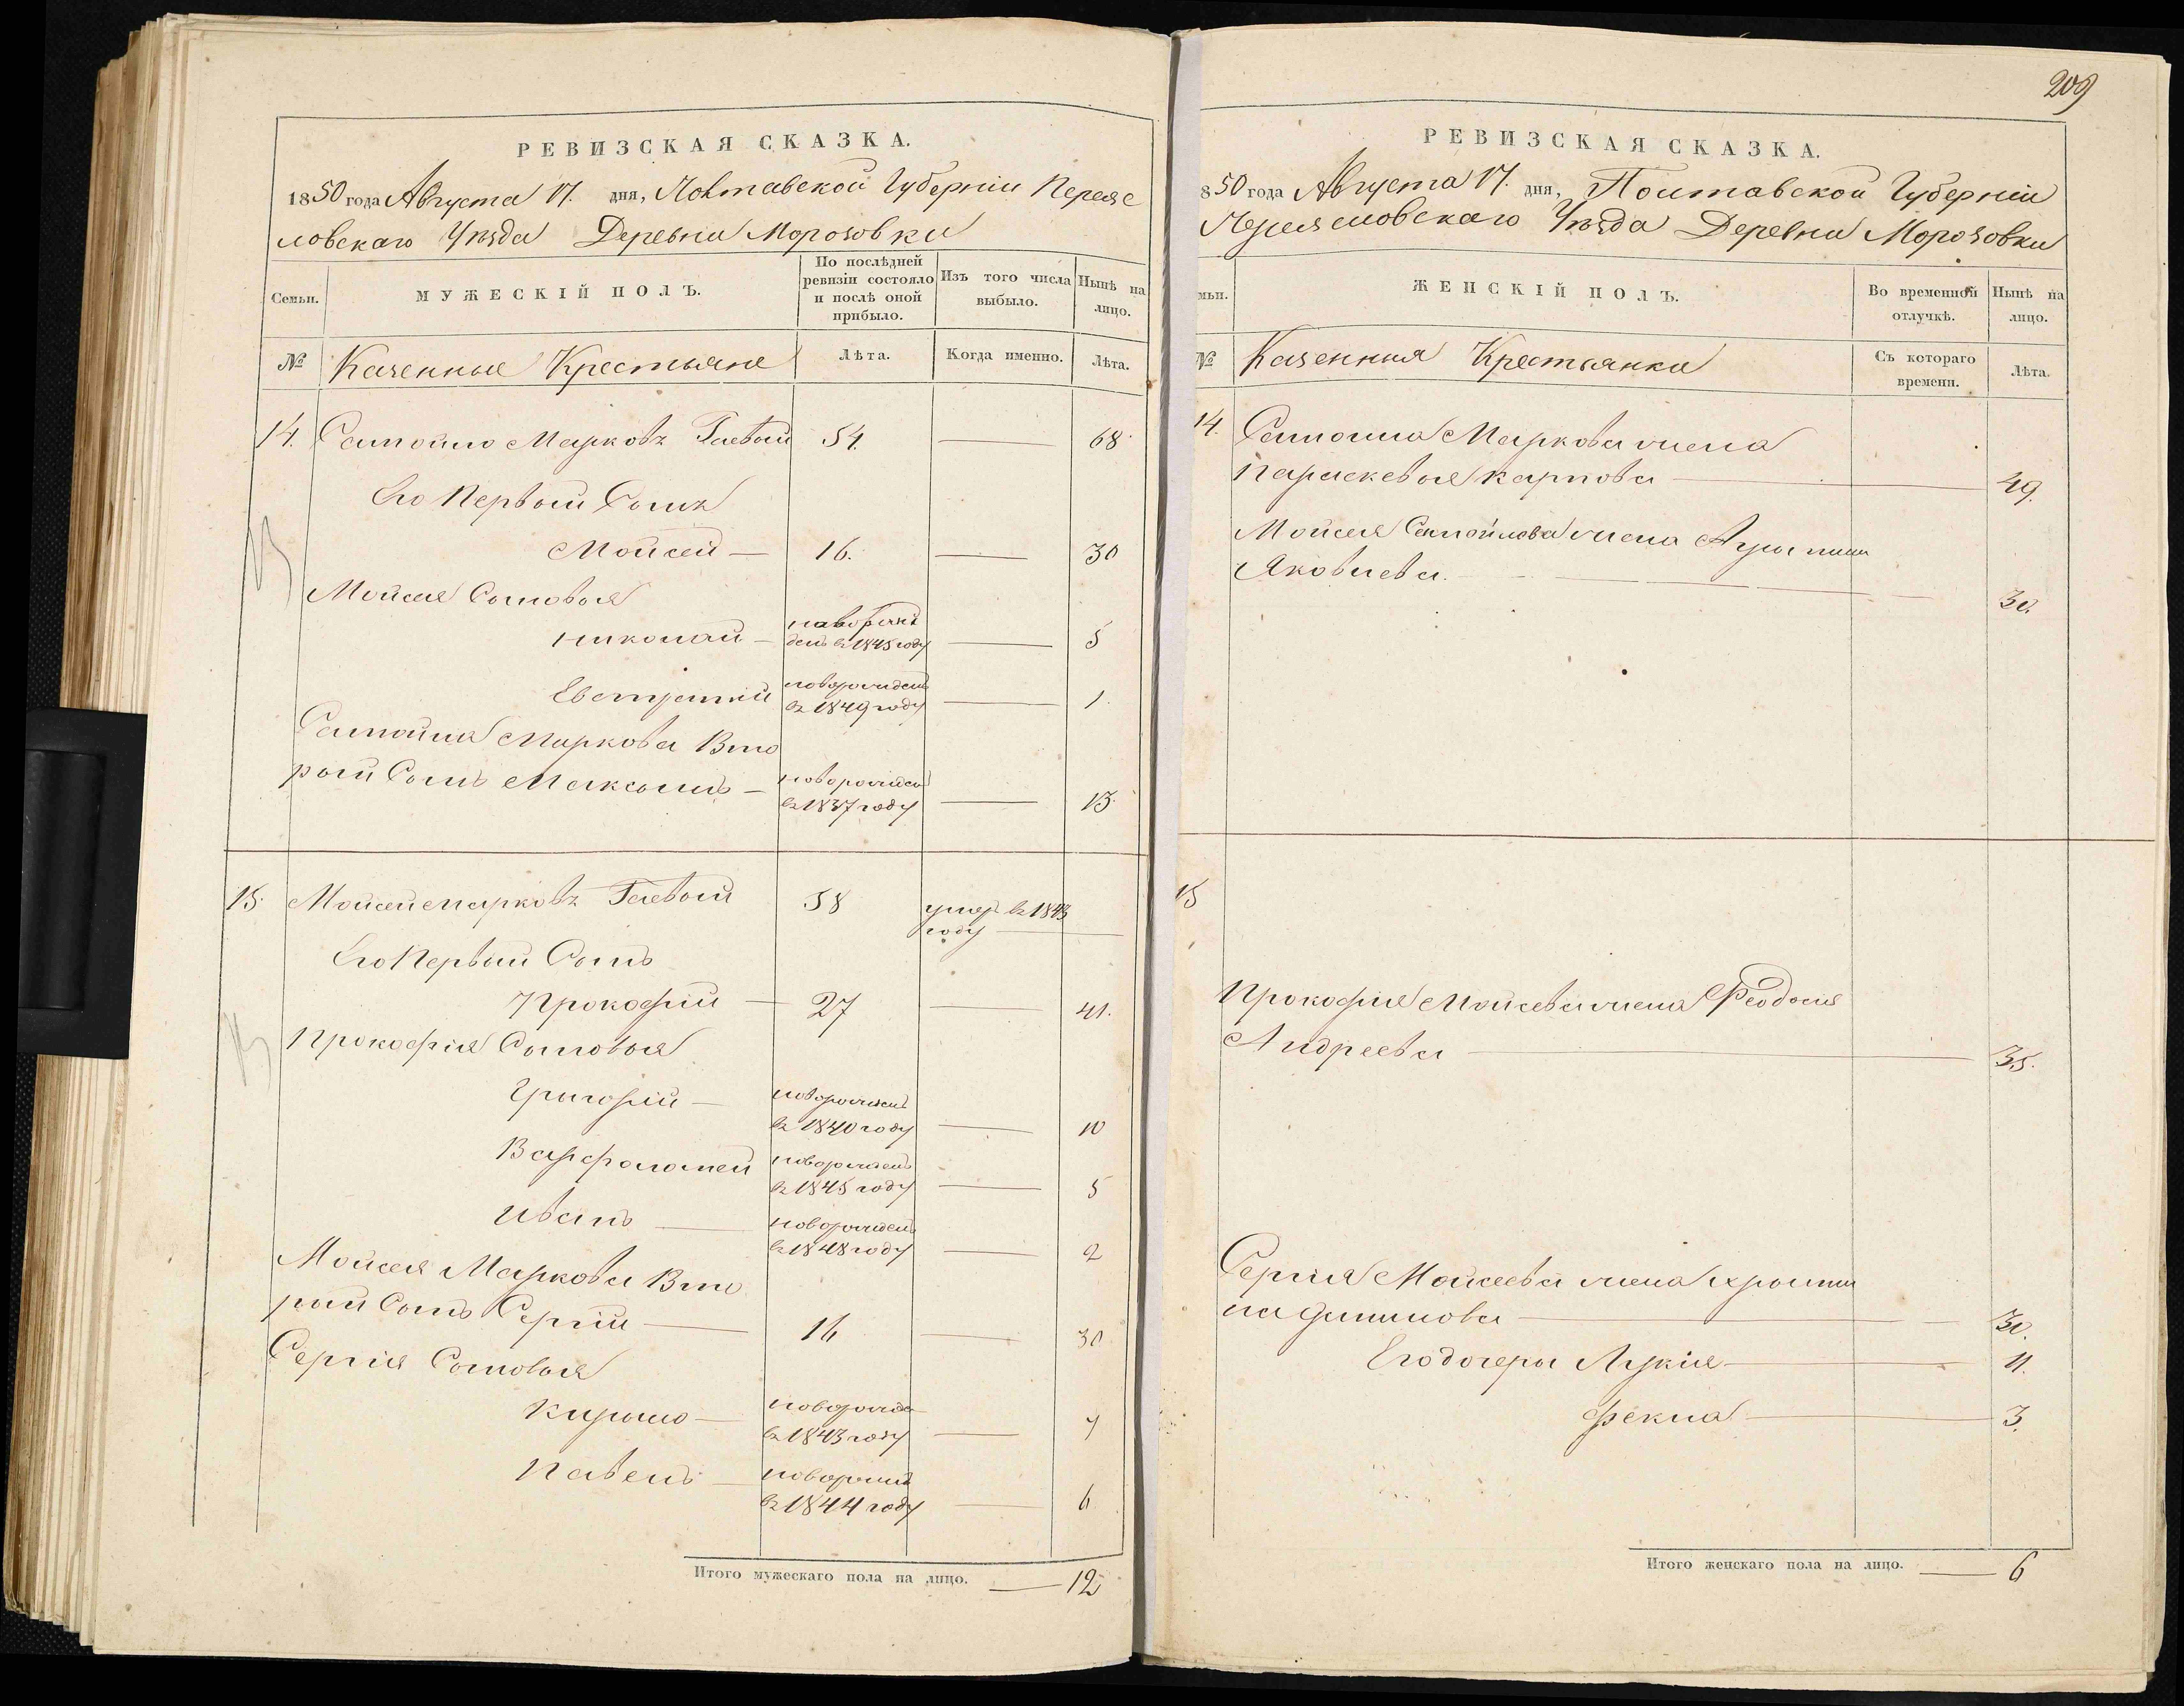 РЕВИЗСКАЯ СКАЗКА.
1850 года Августа 17. дня, Полтавской Губерніи Переяс
ловскаго Уѣзда Деревни Морозовки
Семьи.
МУЖЕСКІЙ ПОЛЪ.
По послѣдней ревизіи состояло и послѣ оной прибыло.
Изъ того числа выбыло.
Нынѣ на лицо.
№ Казенные Крестьяне Лѣта. Когда именно. Лѣта.
14. Самойло Марковъ Гаевый 54. 68
Его Первый Сынъ
Мойсей 16. 30
Мойсея Сыновья
Николай новорожденъ въ 1845 году 5
Евстратій новорожденъ въ 1849 году 1
Самойла Маркова Вто
рой Сынъ Максимъ новорожденъ въ 1837 году 13
15. Мойсей Марковъ Гаевый 58 умеръ въ 1843 году
Его Первый Сынъ
Прокофій 27 41.
Прокофія Сыновья
Григорій новорожденъ въ 1840 году 10
Варфоломей новорожденъ въ 1845 году 5
Иванъ новорожденъ въ 1848 году 2
Мойсея Маркова Вто
рой Сынъ Сергій 16 30
Сергія Сыновья
Кирыло новорожде въ 1843 году 7
Павелъ новорожденъ въ 1844 году 6
Итого мужескаго пола на лицо. 12
209
РЕВИЗСКАЯ СКАЗКА.
850 года Августа 17. дня, Полтавской Губерніи
Переясловскаго Уѣзда Деревни Морозовки
мьи.
ЖЕНСКІЙ ПОЛЪ.
Во временной отлучкѣ.
Нынѣ на лицо.
№ Казенныя Крестьянки Съ котораго времени. Лѣта.
14. Самойла Маркова жена
Параскевья Карпова 49.
Мойсея Самойлова жена
Яковлева. 30.
15
Прокофія Мойсева жена Феодосія
Андреева 35.
Сергія Мойсеева жена Хрысти
на 30.
Его дочери Лукія 11.
Фекла 3.
Итого женскаго пола на лицо. 6